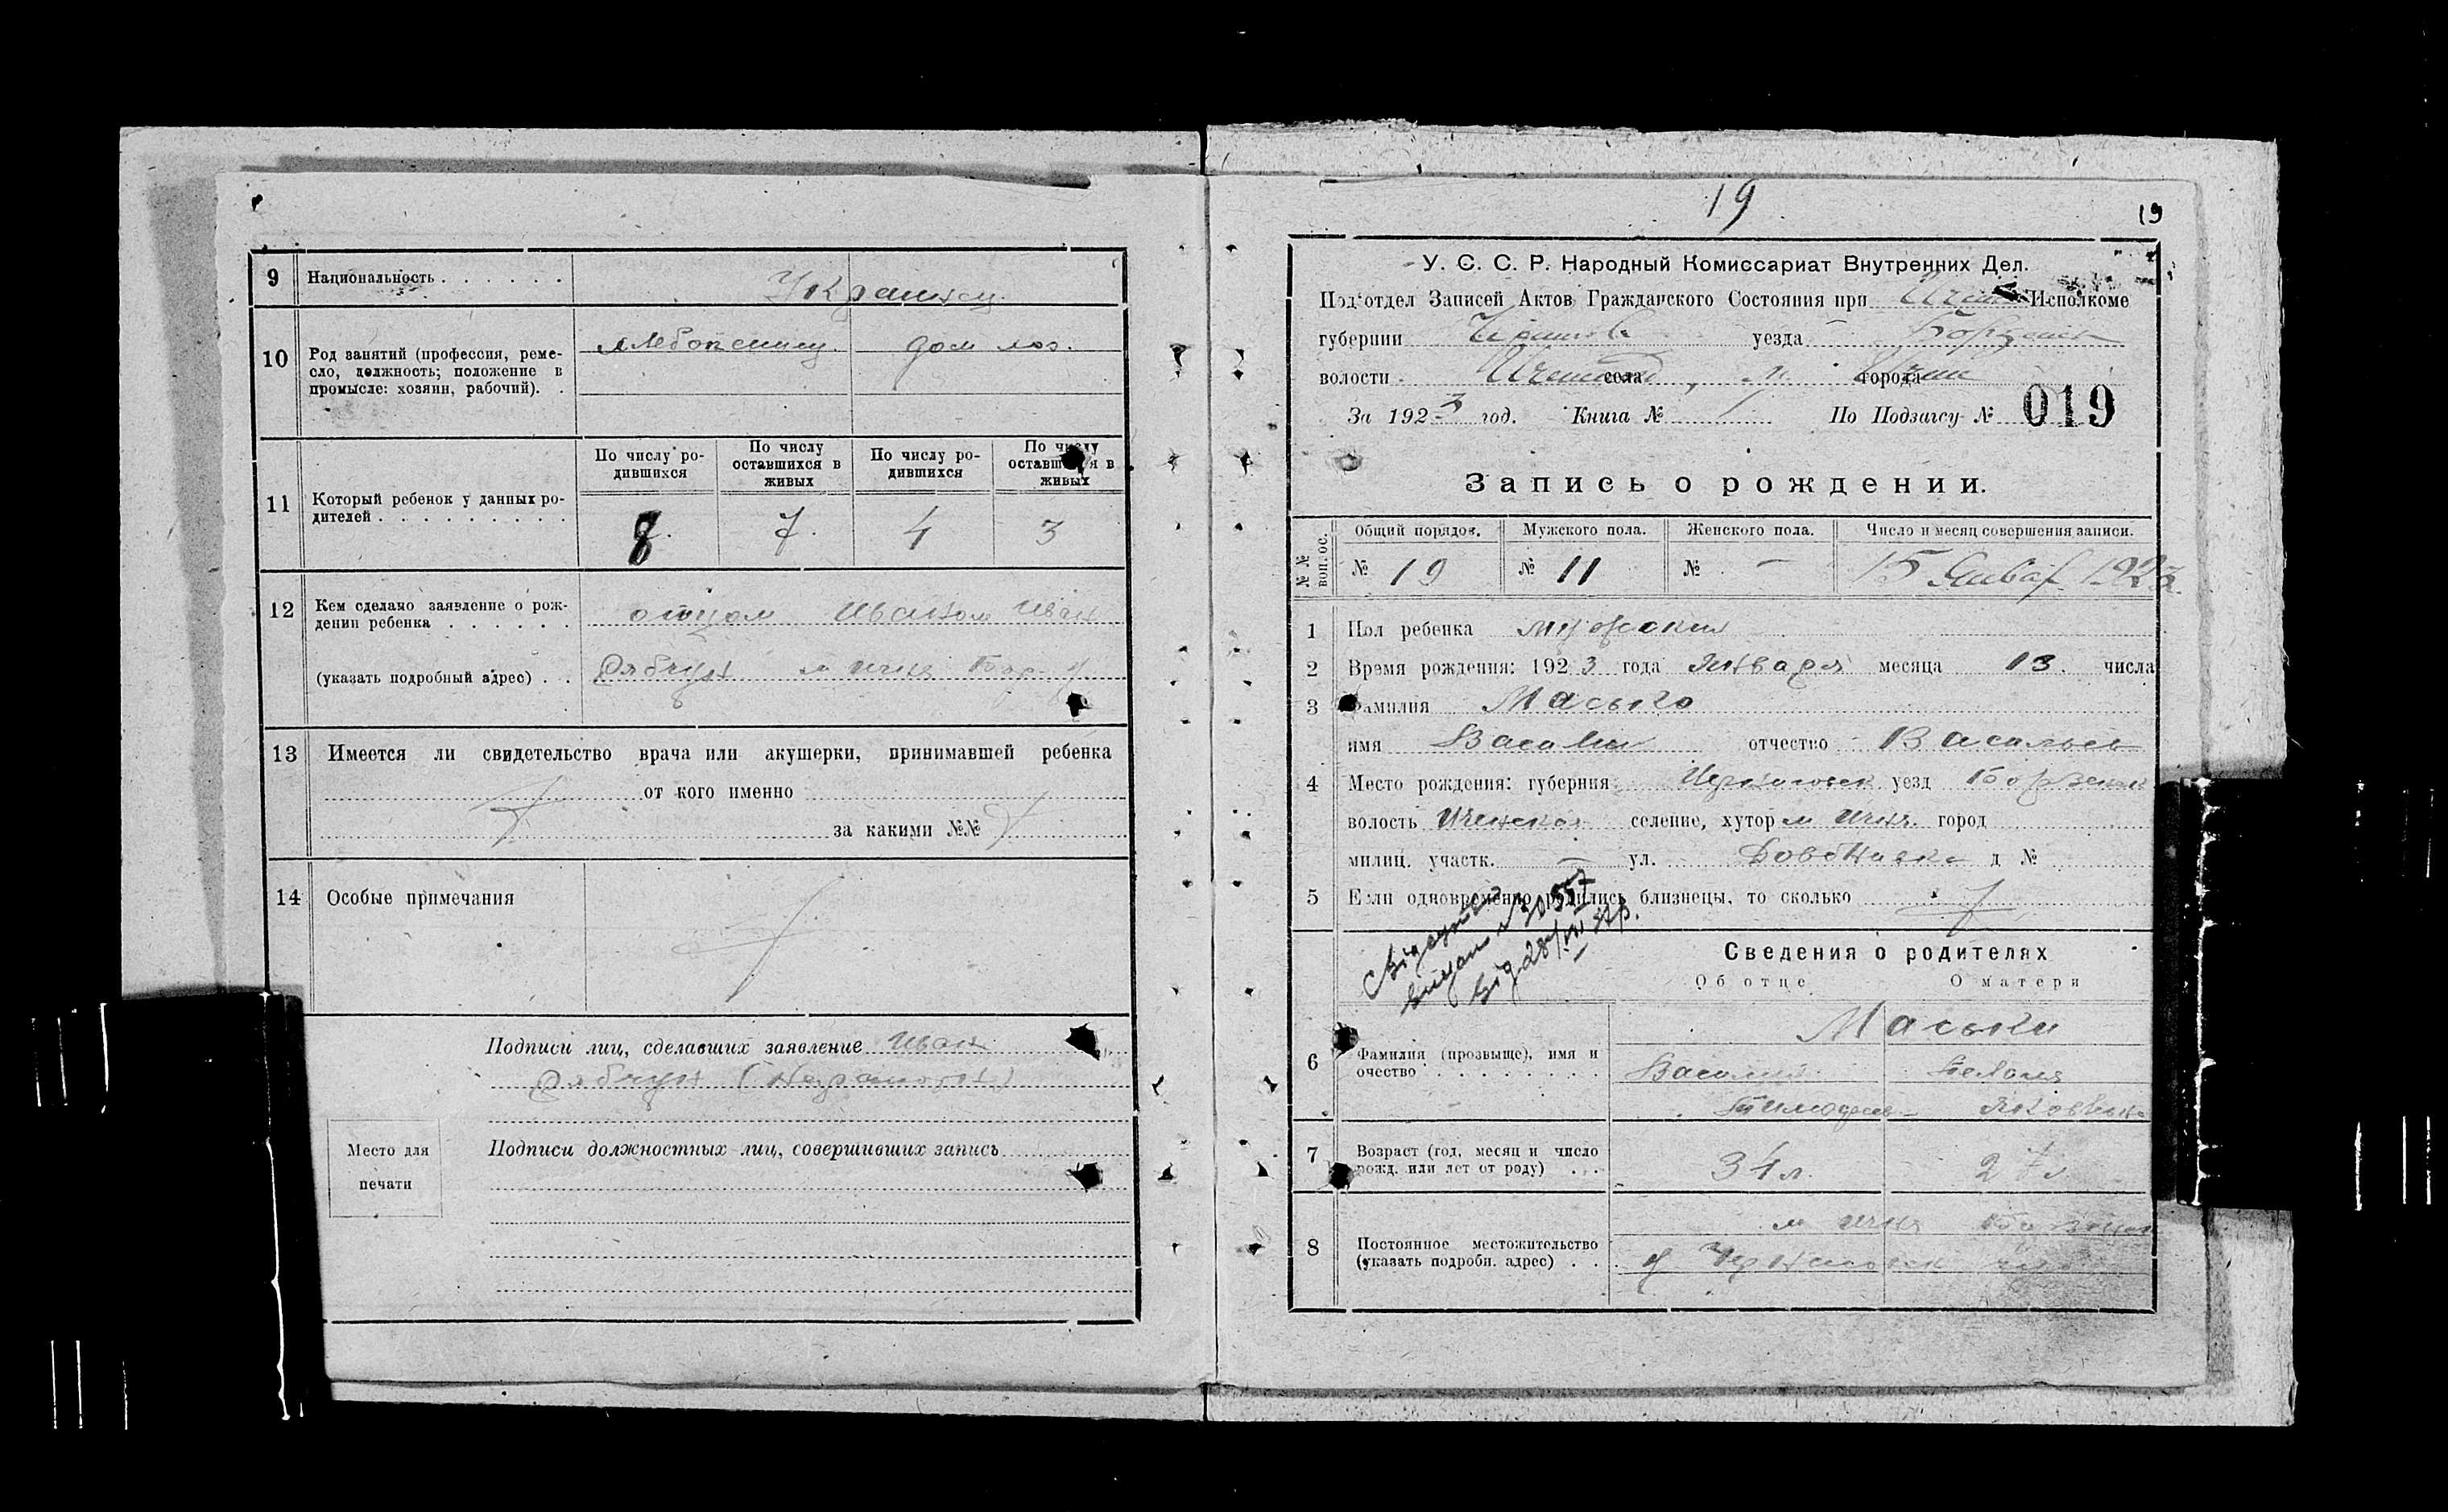 9 Национальность . . . . . . Украинец
10 Род занятий (профессия, реме-
сло, должность; положение в
промысле: хозяин, рабочий). .
хлебопашец дом хоз.
11 Который ребенок у данных ро-
дителей . . . . . . . . .
По числу ро-
дившихся
По числу
оставшихся в
живых
По числу ро-
дившихся
По числу
оставшихся в
живых
8. 7. 4 3
12 Кем сделано заявление о рож-
дении ребенка . . . . . . отцом Иваном Иван
(указать подробный адрес) . . Рябчун м Ичня Борз. у.
13 Имеется ли свидетельство врача или акушерки, принимавшей ребенка
от кого именно
за какими №№
14 Особые примечания
Подписи лиц, сделавших заявление Иван
Рябчун (неграмотн)
Место для
печати
Подписи должностных лиц, совершивших запись
19
19
У. С. С. Р. Народный Комиссариат Внутренних Дел.
Под'отдел Записей Актов Гражданского Состояния при Исполкоме
губернии уезда Борзенск
волости села, м. города Ични
За 1923 год. Книга № 1 По Подзагсу № 019
Запись о рождении.
№№ вопрос.
Общий порядов. Мужского пола. Женского пола. Число и месяц совершения записи.
№ 19 № 11 № — 15 Январ 1923
1 Пол ребенка мужской
2 Время рождения: 1923 года Января месяца 13. числа
3 Фамилия Масыго
имя Василий отчество Васильев
4 Место рождения: губерния Черниговск уезд Борзенск
волость Иченская селение, хутор м Ичня город
милиц. участк. — ул. д №
5 Если одновременно родились близнецы, то сколько
від 28/VII 37р.
Сведения о родителях
Об отце О матери
6 Фамилия (прозвыще), имя и
очество . . . . . . . .
Масыги
Василий Пелагия
Тимофеев Яковлевн
7 Возраст (год, месяц и число
рожд. или лет от роду) . . .
34 л. 27 л
8 Постоянное местожительство
(указать подробн. адрес) . . .
м Ичня Борзенск
у Черниговск губ